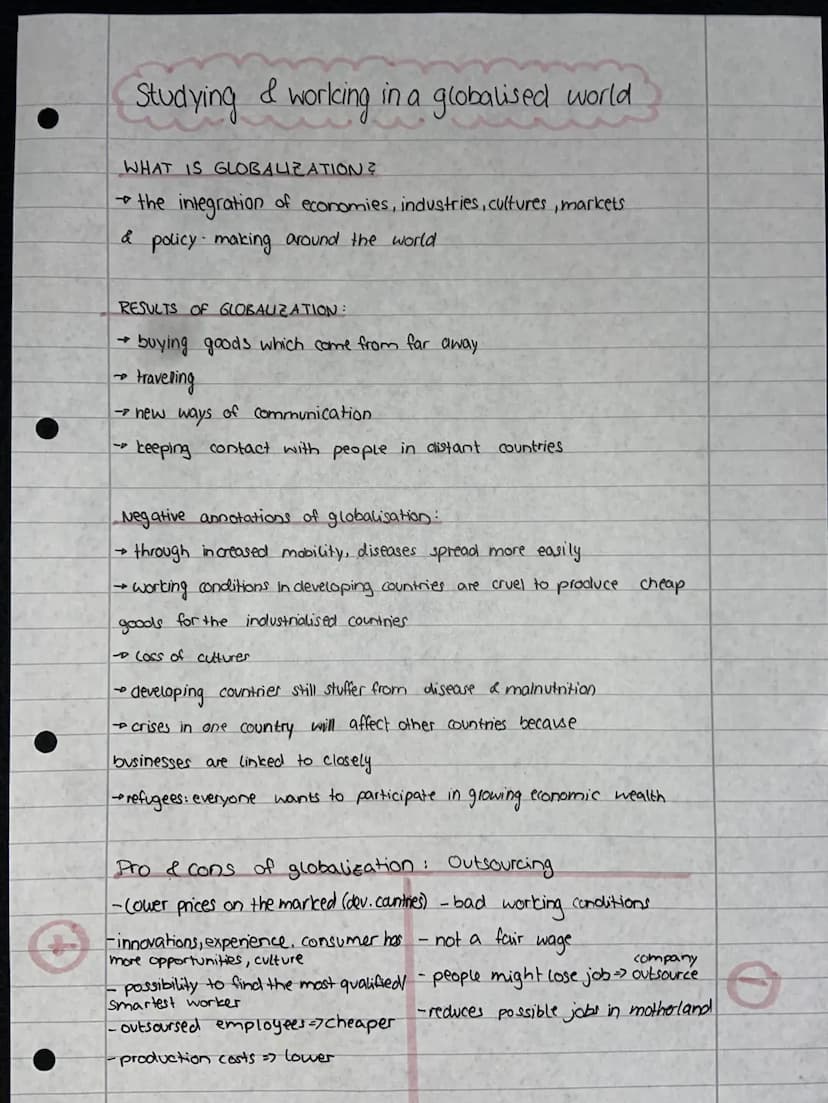 Studying & working in a globalised world
WHAT IS GLOBALIZATION?
→ the integration of economies, industries, cultures, markets
& policy-making around the world
RESULTS OF GLOBALIZATION:
→ buying goods which come from far away
→ traveling
→ new ways of communication
→ keeping contact with people in distant countries
Negative annotations of globalisation:
→ through increased mobility, diseases spread more easily
→ working conditions in developing countries are cruel to produce cheap
goods for the industrialised countries
→ Loss of cultures
→ developing countries still stuffer from disease & malnutrition
→ crises in one country will affect other countries because
businesses are linked to closely
→ refugees: everyone wants to participate in growing economic wealth
Pro & cons of globalization: Outsourcing
- Lower prices on the marked (dev. countries)
- innovations, experience, consumer has
more opportunities, culture
- possibility to find the most qualified/
smartest worker
- outsoursed employees => cheaper
- production costs => lower
+
- bad working conditions
- not a fair wage
company
- people might lose job => outsource
- reduces possible jobs in motherland
-